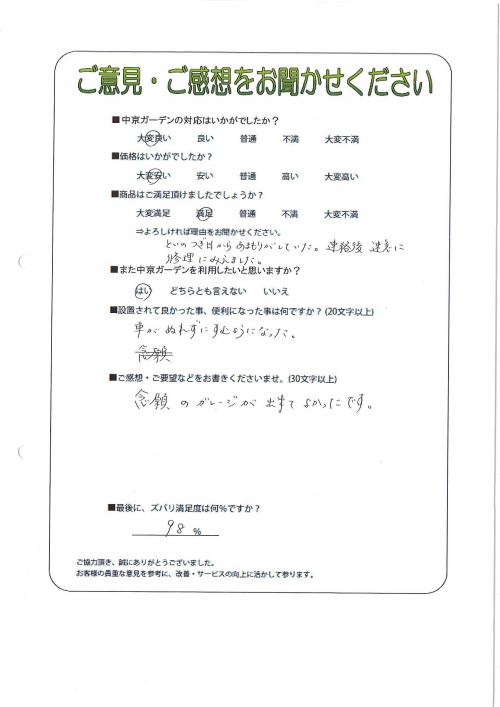 ご意見・ご感想をお聞かせください
■中京ガーデンの対応はいかがでしたか？
大変良い 良い 普通 不満 大変不満
■価格はいかがでしたか？
大変安い 安い 普通 高い 大変高い
■商品はご満足頂けましたでしょうか？
大変満足 満足 普通 不満 大変不満
⇒よろしければ理由をお聞かせください。
といのつぎ目からあまもりがしていた。連絡後 速急に
修理にみえました。
■また中京ガーデンを利用したいと思いますか？
はい どちらとも言えない いいえ
■設置されて良かった事、便利になった事は何ですか？(20文字以上)
車がぬれずにすむようになった。
念願
■ご感想・ご要望などをお書きくださいませ。(30文字以上)
念願のガレージが出来てよかったです。
■最後に、ズバリ満足度は何％ですか？
98 %
ご協力頂き、誠にありがとうございました。
お客様の貴重な意見を参考に、改善・サービスの向上に活かして参ります。